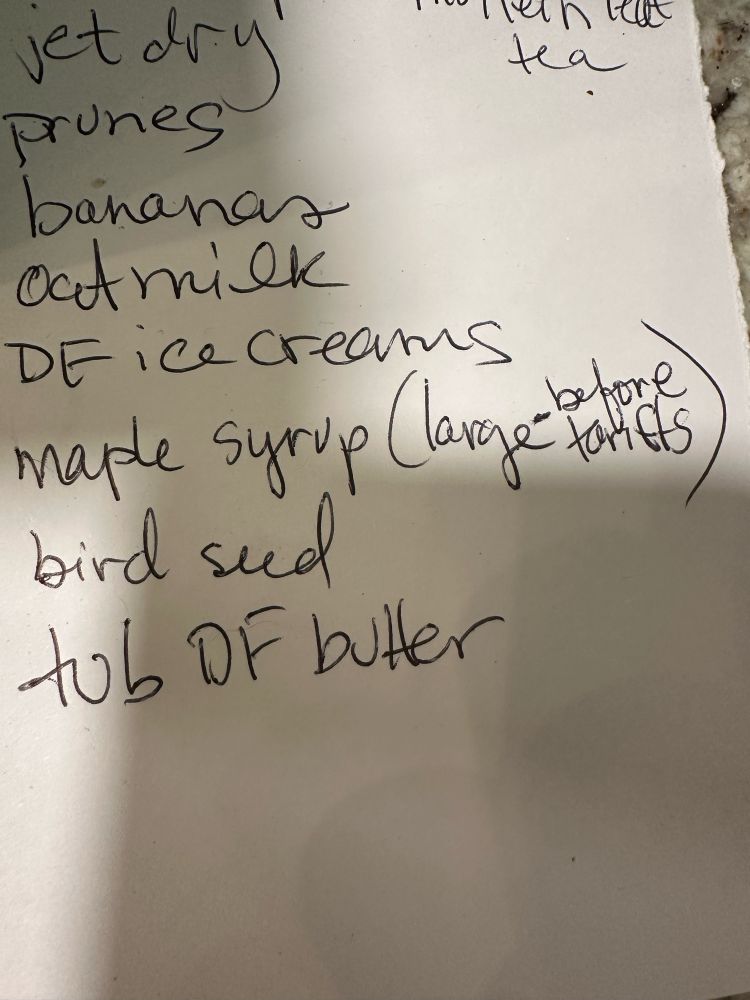 jet dry
tea
prunes
bananas
oat milk
DF ice creams
maple syrup (large - before tariffs)
bird seed
tub DF butter